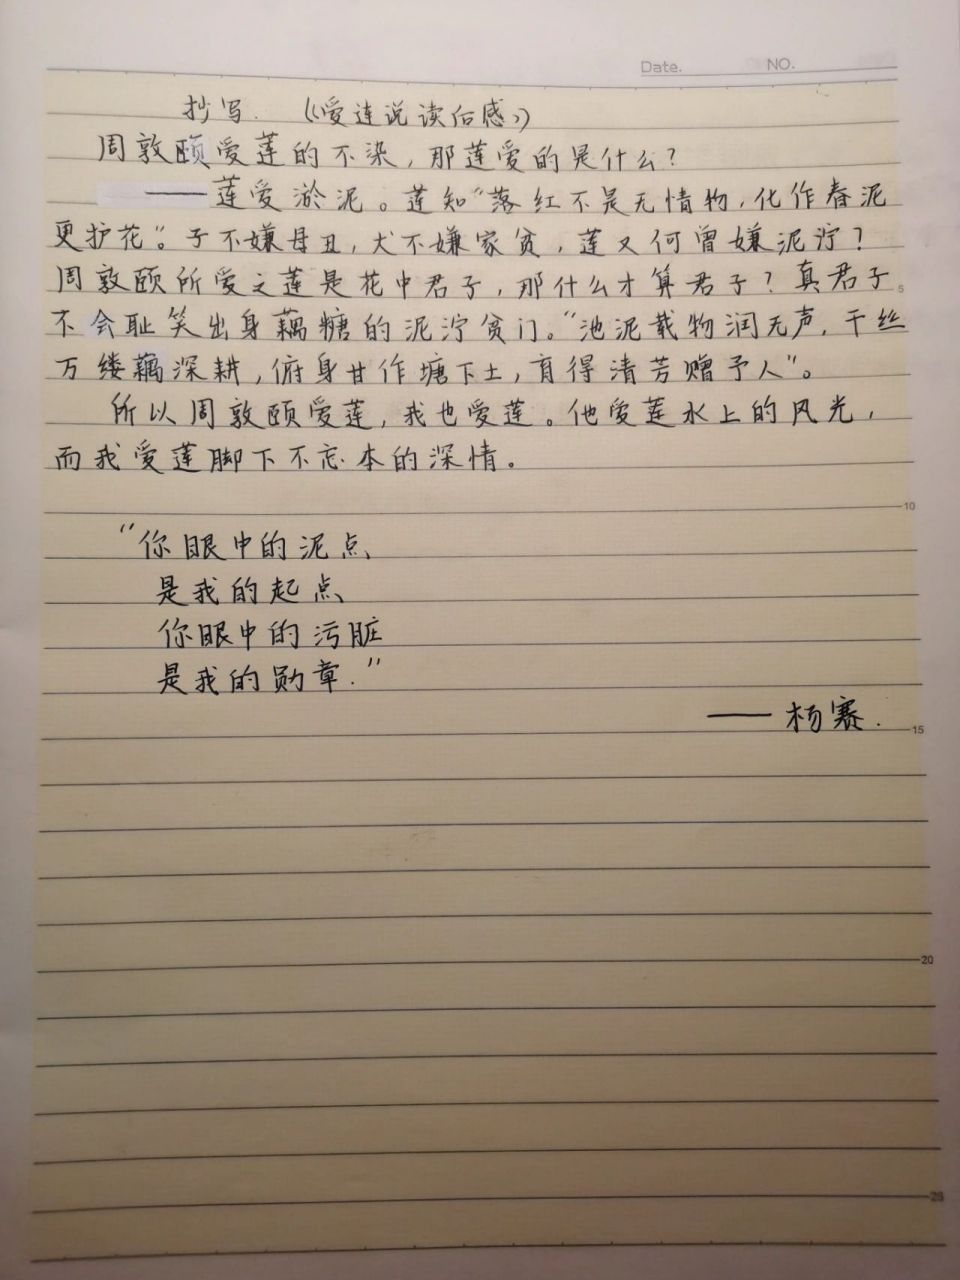 Date. NO.
抄写. 《爱连说读后感》
周敦颐爱莲的不染，那莲爱的是什么？
——莲爱淤泥。莲知“落红不是无情物，化作春泥
更护花”。子不嫌母丑，犬不嫌家贫，莲又何曾嫌泥泞？
周敦颐所爱之莲是花中君子，那什么才算君子？真君子
5
不会耻笑出身藕糖的泥泞贫门。“池泥载物润无声，千丝
万缕藕深耕，俯身甘作塘下土，育得清芳赠予人”。
所以周敦颐爱莲，我也爱莲。他爱莲水上的风光，
而我爱莲脚下不忘本的深情。
10
“你眼中的泥点
是我的起点
你眼中的污脏
是我的勋章.”
——杨赛.
15
20
25